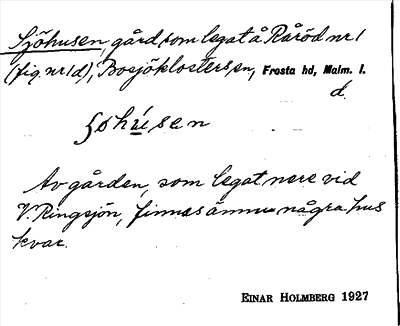 Sjöhusen, gård, som legat å Råröd nr 1
(fig. nr 1d), Bosjöklosters sn, Frosta hd, Malm. l.
d.
Av gården, som legat nere vid
V. Ringsjön, finnas ännu några hus
kvar.
EINAR HOLMBERG 1927